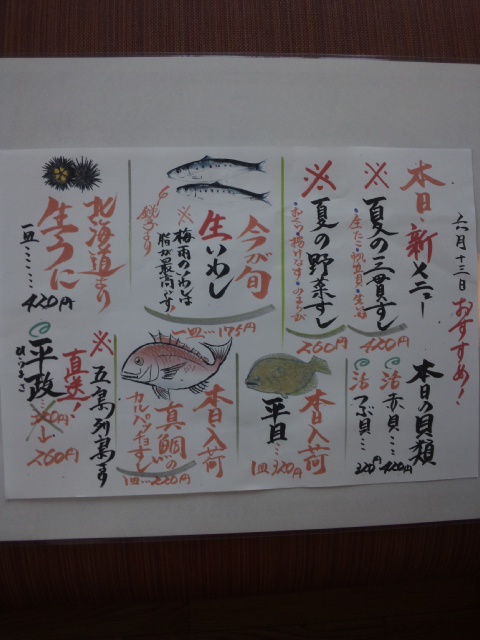 六月十三日
おすすめ!
本日・新メニュー
※夏の三貫すし
・生たこ・帆立貝・生いわし
420円
※夏の野菜すし
260円
今が旬
生いわし
※梅雨のいわしは
脂が最高です!
銚子より
一皿…175円
北海道より
生うに
一皿……420円
本日の貝類
活赤貝……420円
活つぶ貝…220円
本日入荷
平目…
1皿320円
本日入荷
真鯛の
カルパッチョすし
1皿…220円
※五島列島より
直送!
平政
260円